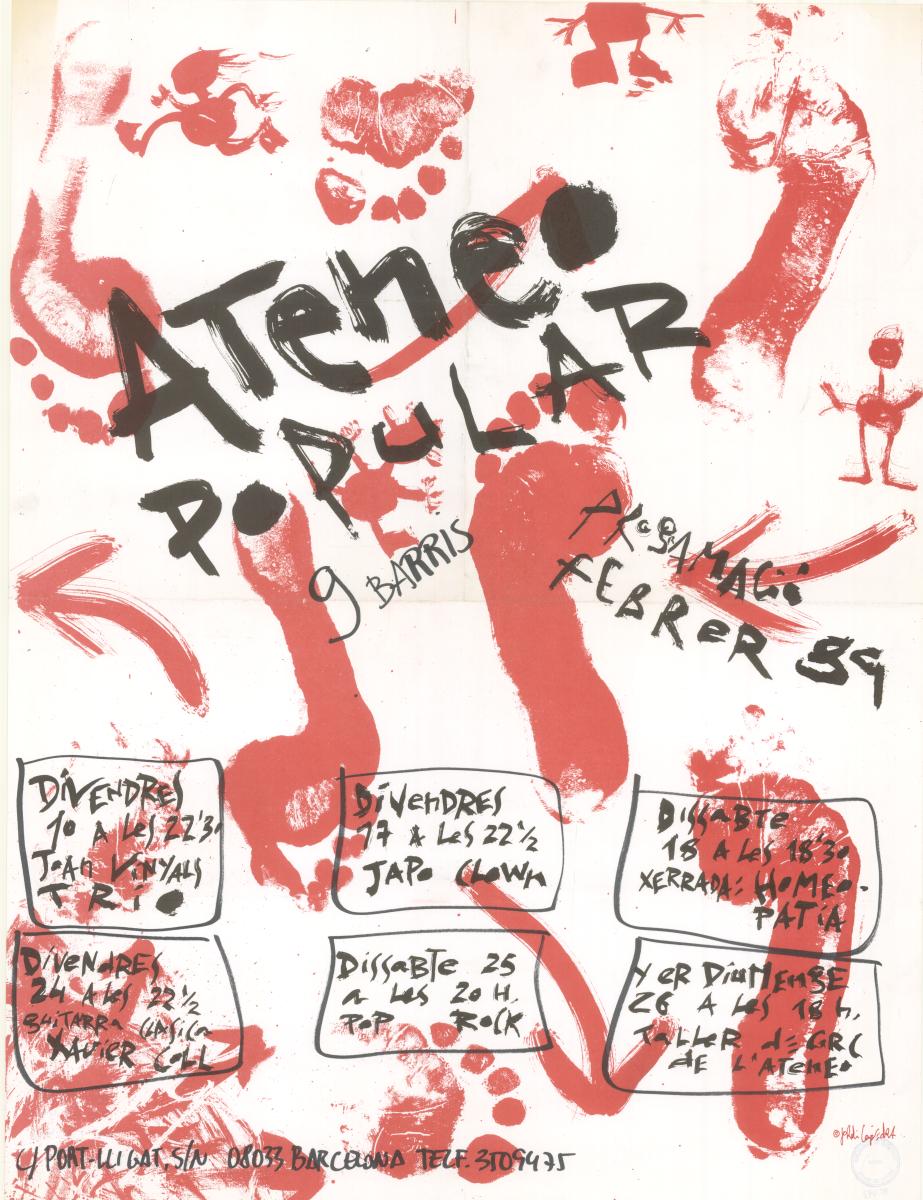 ATeneo
POPULAR
9 BARRIS
PROGRAMACIÓ
FEBRER 89
DIVENDRES
10 A LES 22'30
JOAN VINYALS
TRIO
DIVENDRES
17 A LES 22½
JAPO CLOWN
DISSABTE
18 A LES 18'30
XERRADA: HOMEO-
PATIA
DIVENDRES
24 A LES 22½
GUITARRA CLASICA
XAVIER COLL
DISSABTE 25
A LES 20 H.
POP ROCK
Y ER DIUMENGE
26 A LES 18 h.
TALLER DE CIRC
DE L'ATENEO
C/ PORT-LLIGAT, S/N 08033 BARCELONA TELF. 3509475